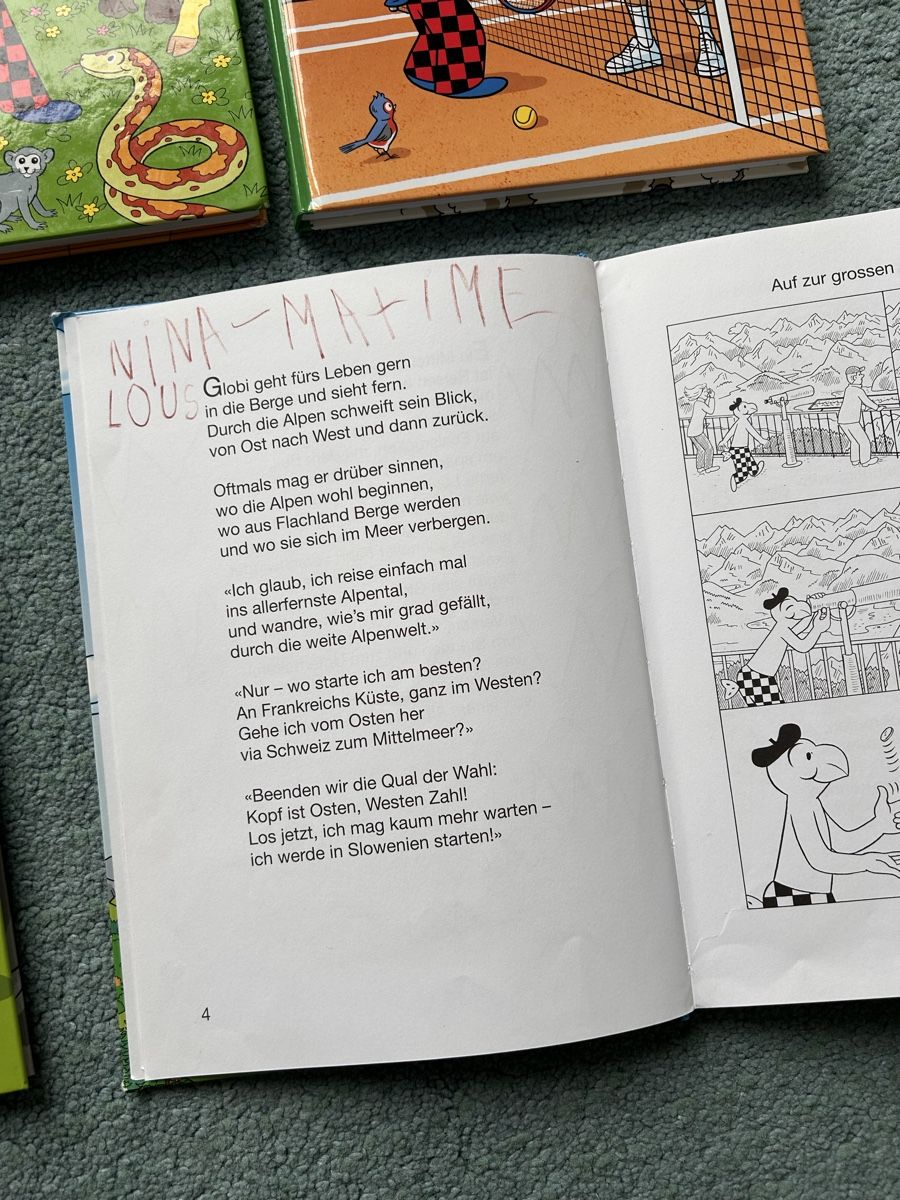 NINA-MAXIME
LOUS
Globi geht fürs Leben gern
in die Berge und sieht fern.
Durch die Alpen schweift sein Blick,
von Ost nach West und dann zurück.
Oftmals mag er drüber sinnen,
wo die Alpen wohl beginnen,
wo aus Flachland Berge werden
und wo sie sich im Meer verbergen.
«Ich glaub, ich reise einfach mal
ins allerfernste Alpental,
und wandre, wie's mir grad gefällt,
durch die weite Alpenwelt.»
«Nur – wo starte ich am besten?
An Frankreichs Küste, ganz im Westen?
Gehe ich vom Osten her
via Schweiz zum Mittelmeer?»
«Beenden wir die Qual der Wahl:
Kopf ist Osten, Westen Zahl!
Los jetzt, ich mag kaum mehr warten –
ich werde in Slowenien starten!»
4
Auf zur grossen